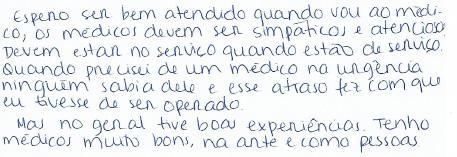 Espero ser bem atendido quando vou ao médi-
co, os médicos devem ser simpáticos e atencioso
Devem estar no serviço quando estão de serviço.
Quando precisei de um médico na urgência
ninguém sabia dele e esse atraso fez com que
eu tivesse de ser operado.
Mas no geral tive boas experiências. Tenho
médicos muito bons, na arte e como pessoas